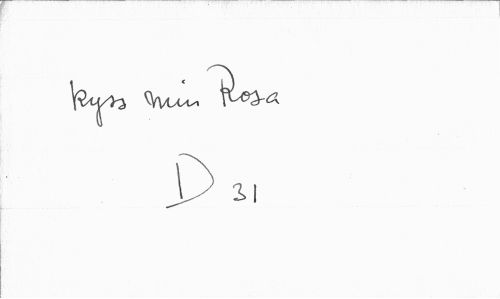 kyss min Rosa
D 31